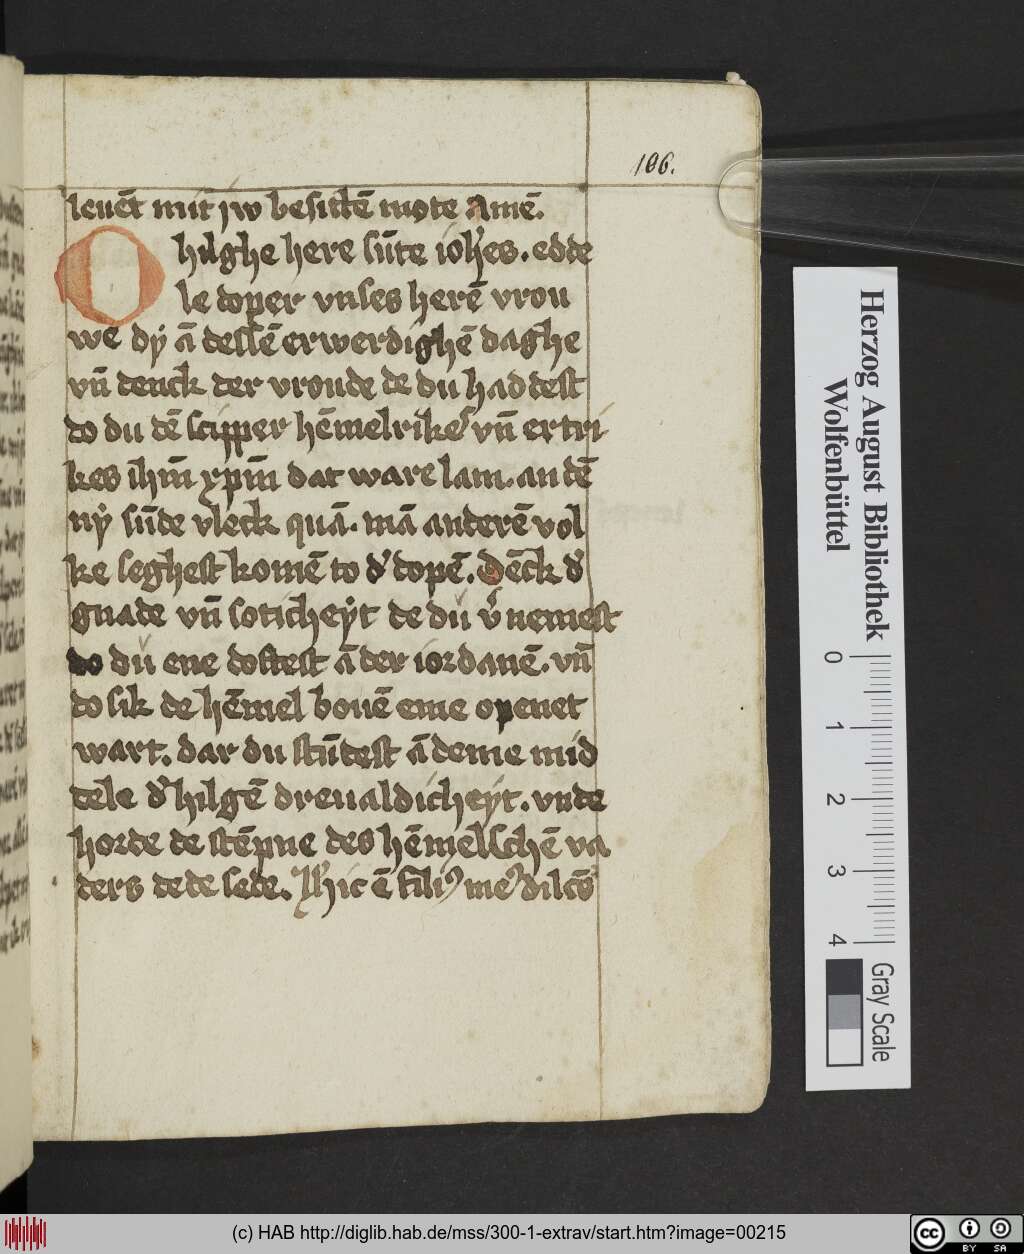 106.
leuēt mit jw besittē mote Amē.
O hilghe here sūte ioh̄es. edde
le doper vnses herē vrou
we dÿ ā dessē erwerdighē daghe
vn̄ denck der vroude de du haddest
do du dē scipper hēmelrikes vn̄ ertri
kes ihm̄ xpm̄ dat ware lam. an dē
nÿ sūde vleck quā. mā anderē vol
ke seghest komē to d' dopē. Dēck d'
gnade vn̄ soticheÿt de du v'nemest
do du ene doftest ā der iordanē. vn̄
do sik de hēmel bouē eme openet
wart. dar du stūdest ā deme mid
dele d' hilgē dreualdicheÿt. vnde
horde de stēpne des hēmelschē va
ders de de sede. Hic ē filiꝰ meꝰ dilcs̄
Herzog August Bibliothek
Wolfenbüttel
0 1 2 3 4
Gray Scale
(c) HAB http://diglib.hab.de/mss/300-1-extrav/start.htm?image=00215
cc BY SA